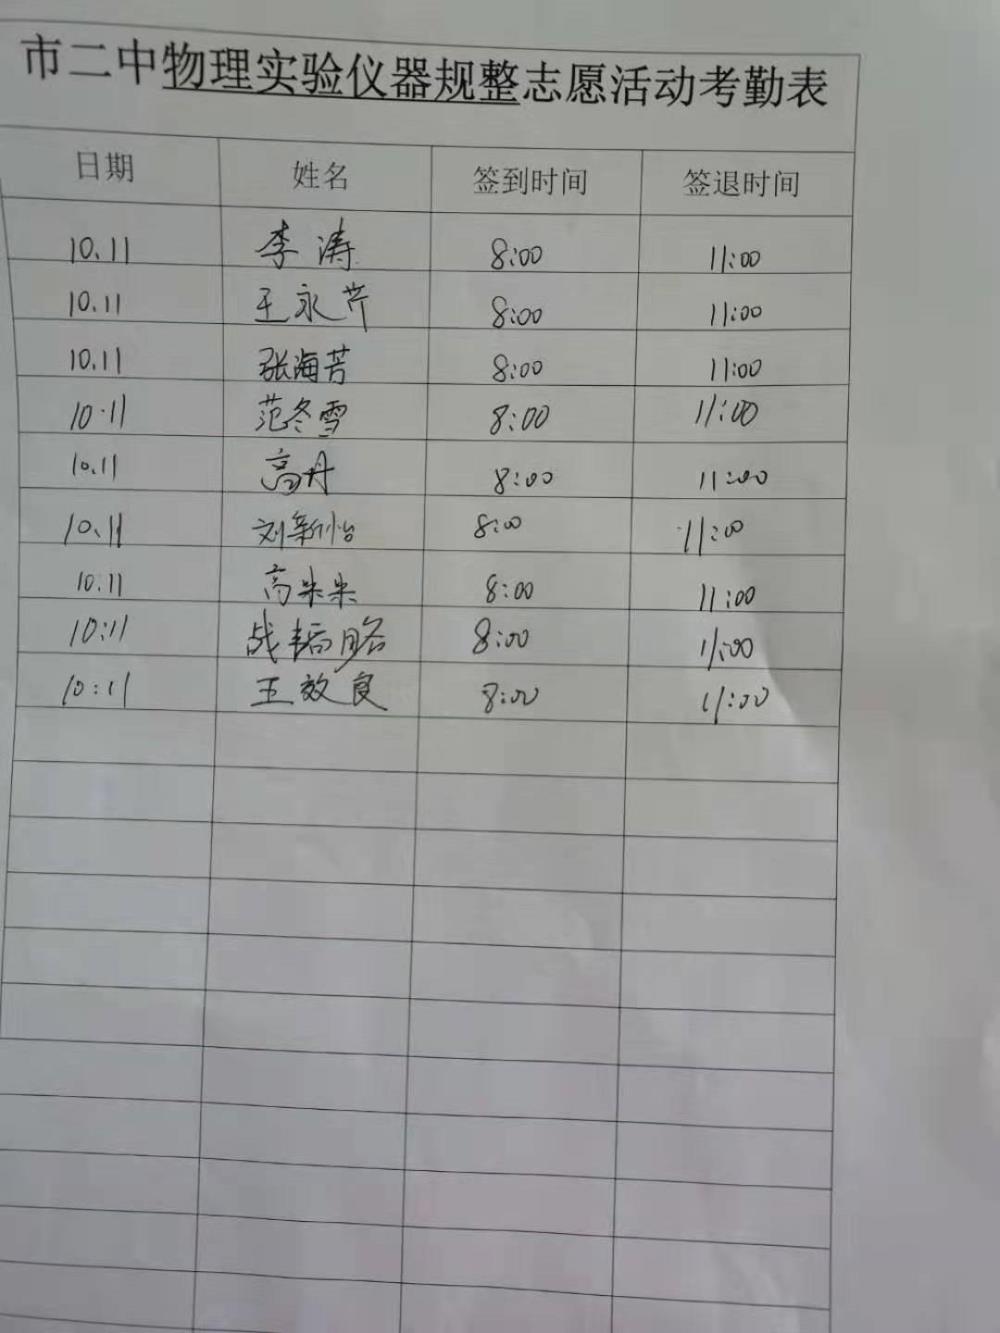 市二中物理实验仪器规整志愿活动考勤表
日期 姓名 签到时间 签退时间
10.11 李涛 8:00 11:00
10.11 王永芹 8:00 11:00
10.11 张海芳 8:00 11:00
10.11 范冬雪 8:00 11:00
10.11 高丹 8:00 11:00
10.11 刘新怡 8:00 11:00
10.11 高朱朱 8:00 11:00
10:11 战韬略 8:00 11:00
10:11 王效良 8:00 11:00